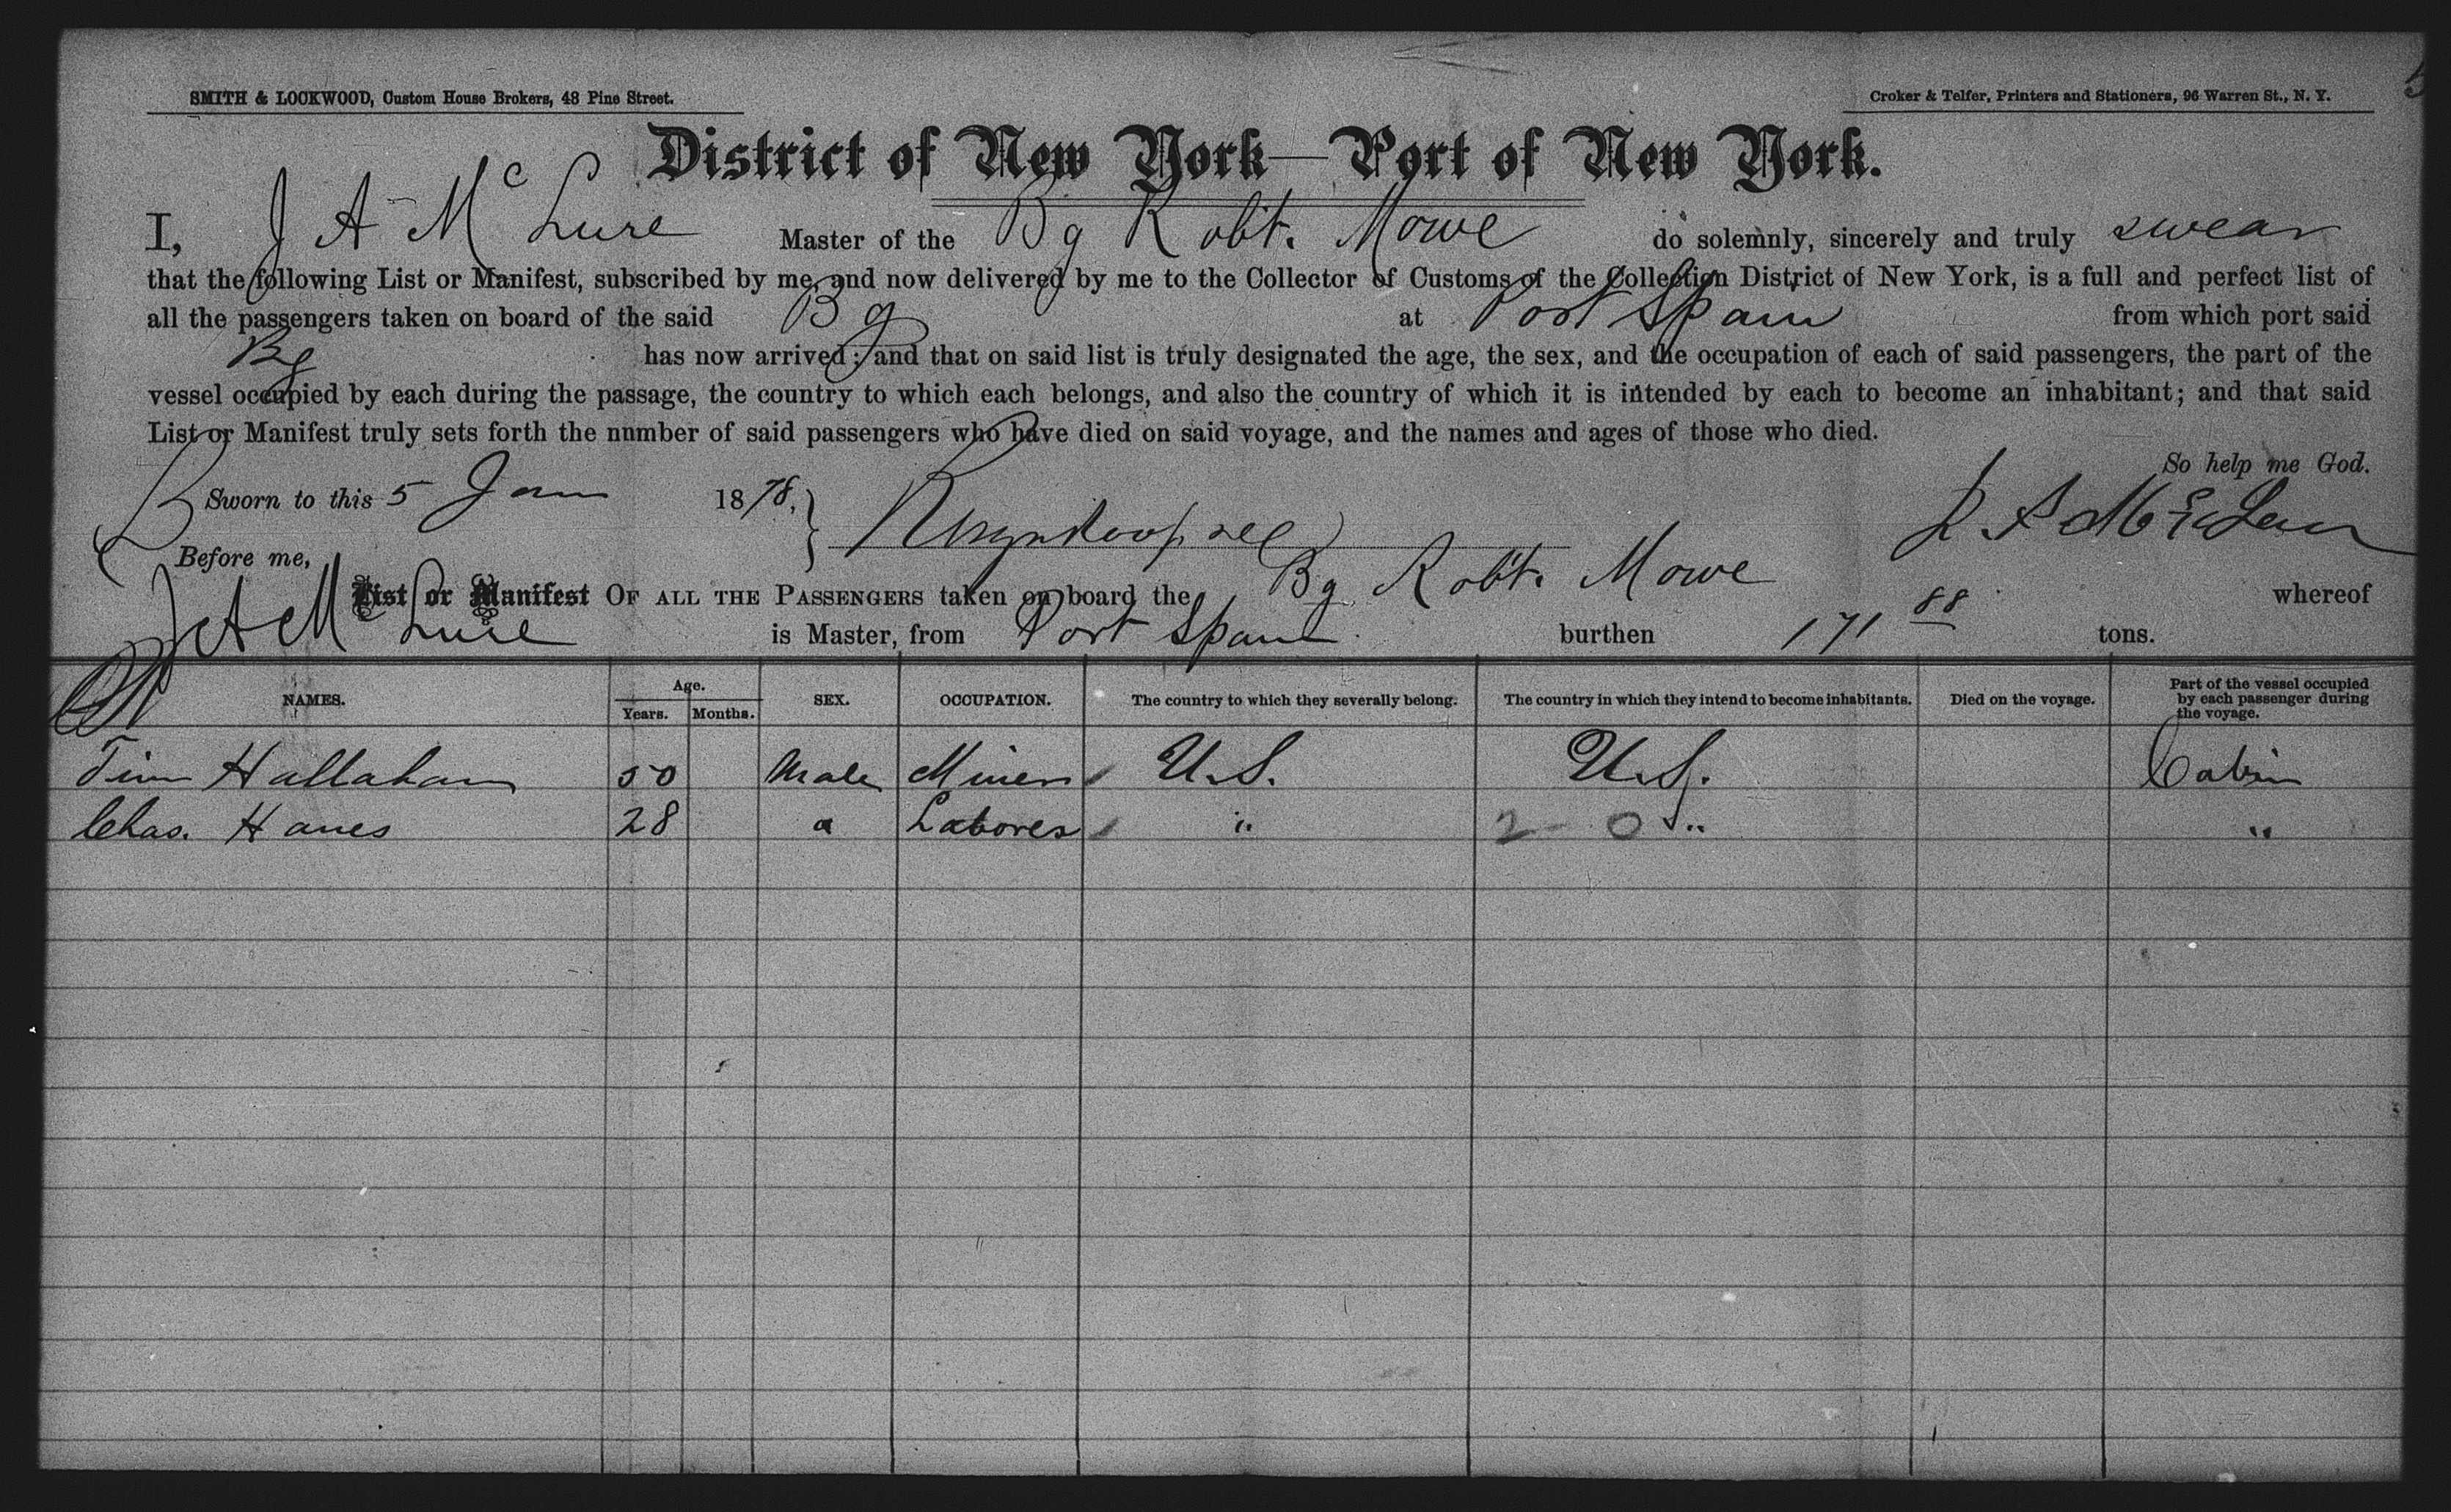 SMITH & LOCKWOOD, Custom House Brokers, 48 Pine Street.
Croker & Telfer, Printers and Stationers, 96 Warren St., N. Y.
District of New York—Port of New York.
I, J A Mc Lure Master of the Bg Robt. Mowe do solemnly, sincerely and truly swear
that the following List or Manifest, subscribed by me, and now delivered by me to the Collector of Customs of the Collection District of New York, is a full and perfect list of
all the passengers taken on board of the said Bg at Port Spain from which port said
Bg has now arrived; and that on said list is truly designated the age, the sex, and the occupation of each of said passengers, the part of the
vessel occupied by each during the passage, the country to which each belongs, and also the country of which it is intended by each to become an inhabitant; and that said
List or Manifest truly sets forth the nnmber of said passengers who have died on said voyage, and the names and ages of those who died.
So help me God.
Sworn to this 5 Jan 1878,
Before me,
List or Manifest OF ALL THE PASSENGERS taken on board the Bg Robt. Mowe whereof
J A Mc Lure is Master, from Port Spain burthen 171 88 tons.
NAMES. Age. Years. Months. SEX. OCCUPATION. The country to which they severally belong. The country in which they intend to become inhabitants. Died on the voyage. Part of the vessel occupied by each passenger during the voyage.
Tim Hallahan 50 Male Miner U.S. U.S. Cabin
Chas. Hanes 28 " Laborer " 2 0 " "